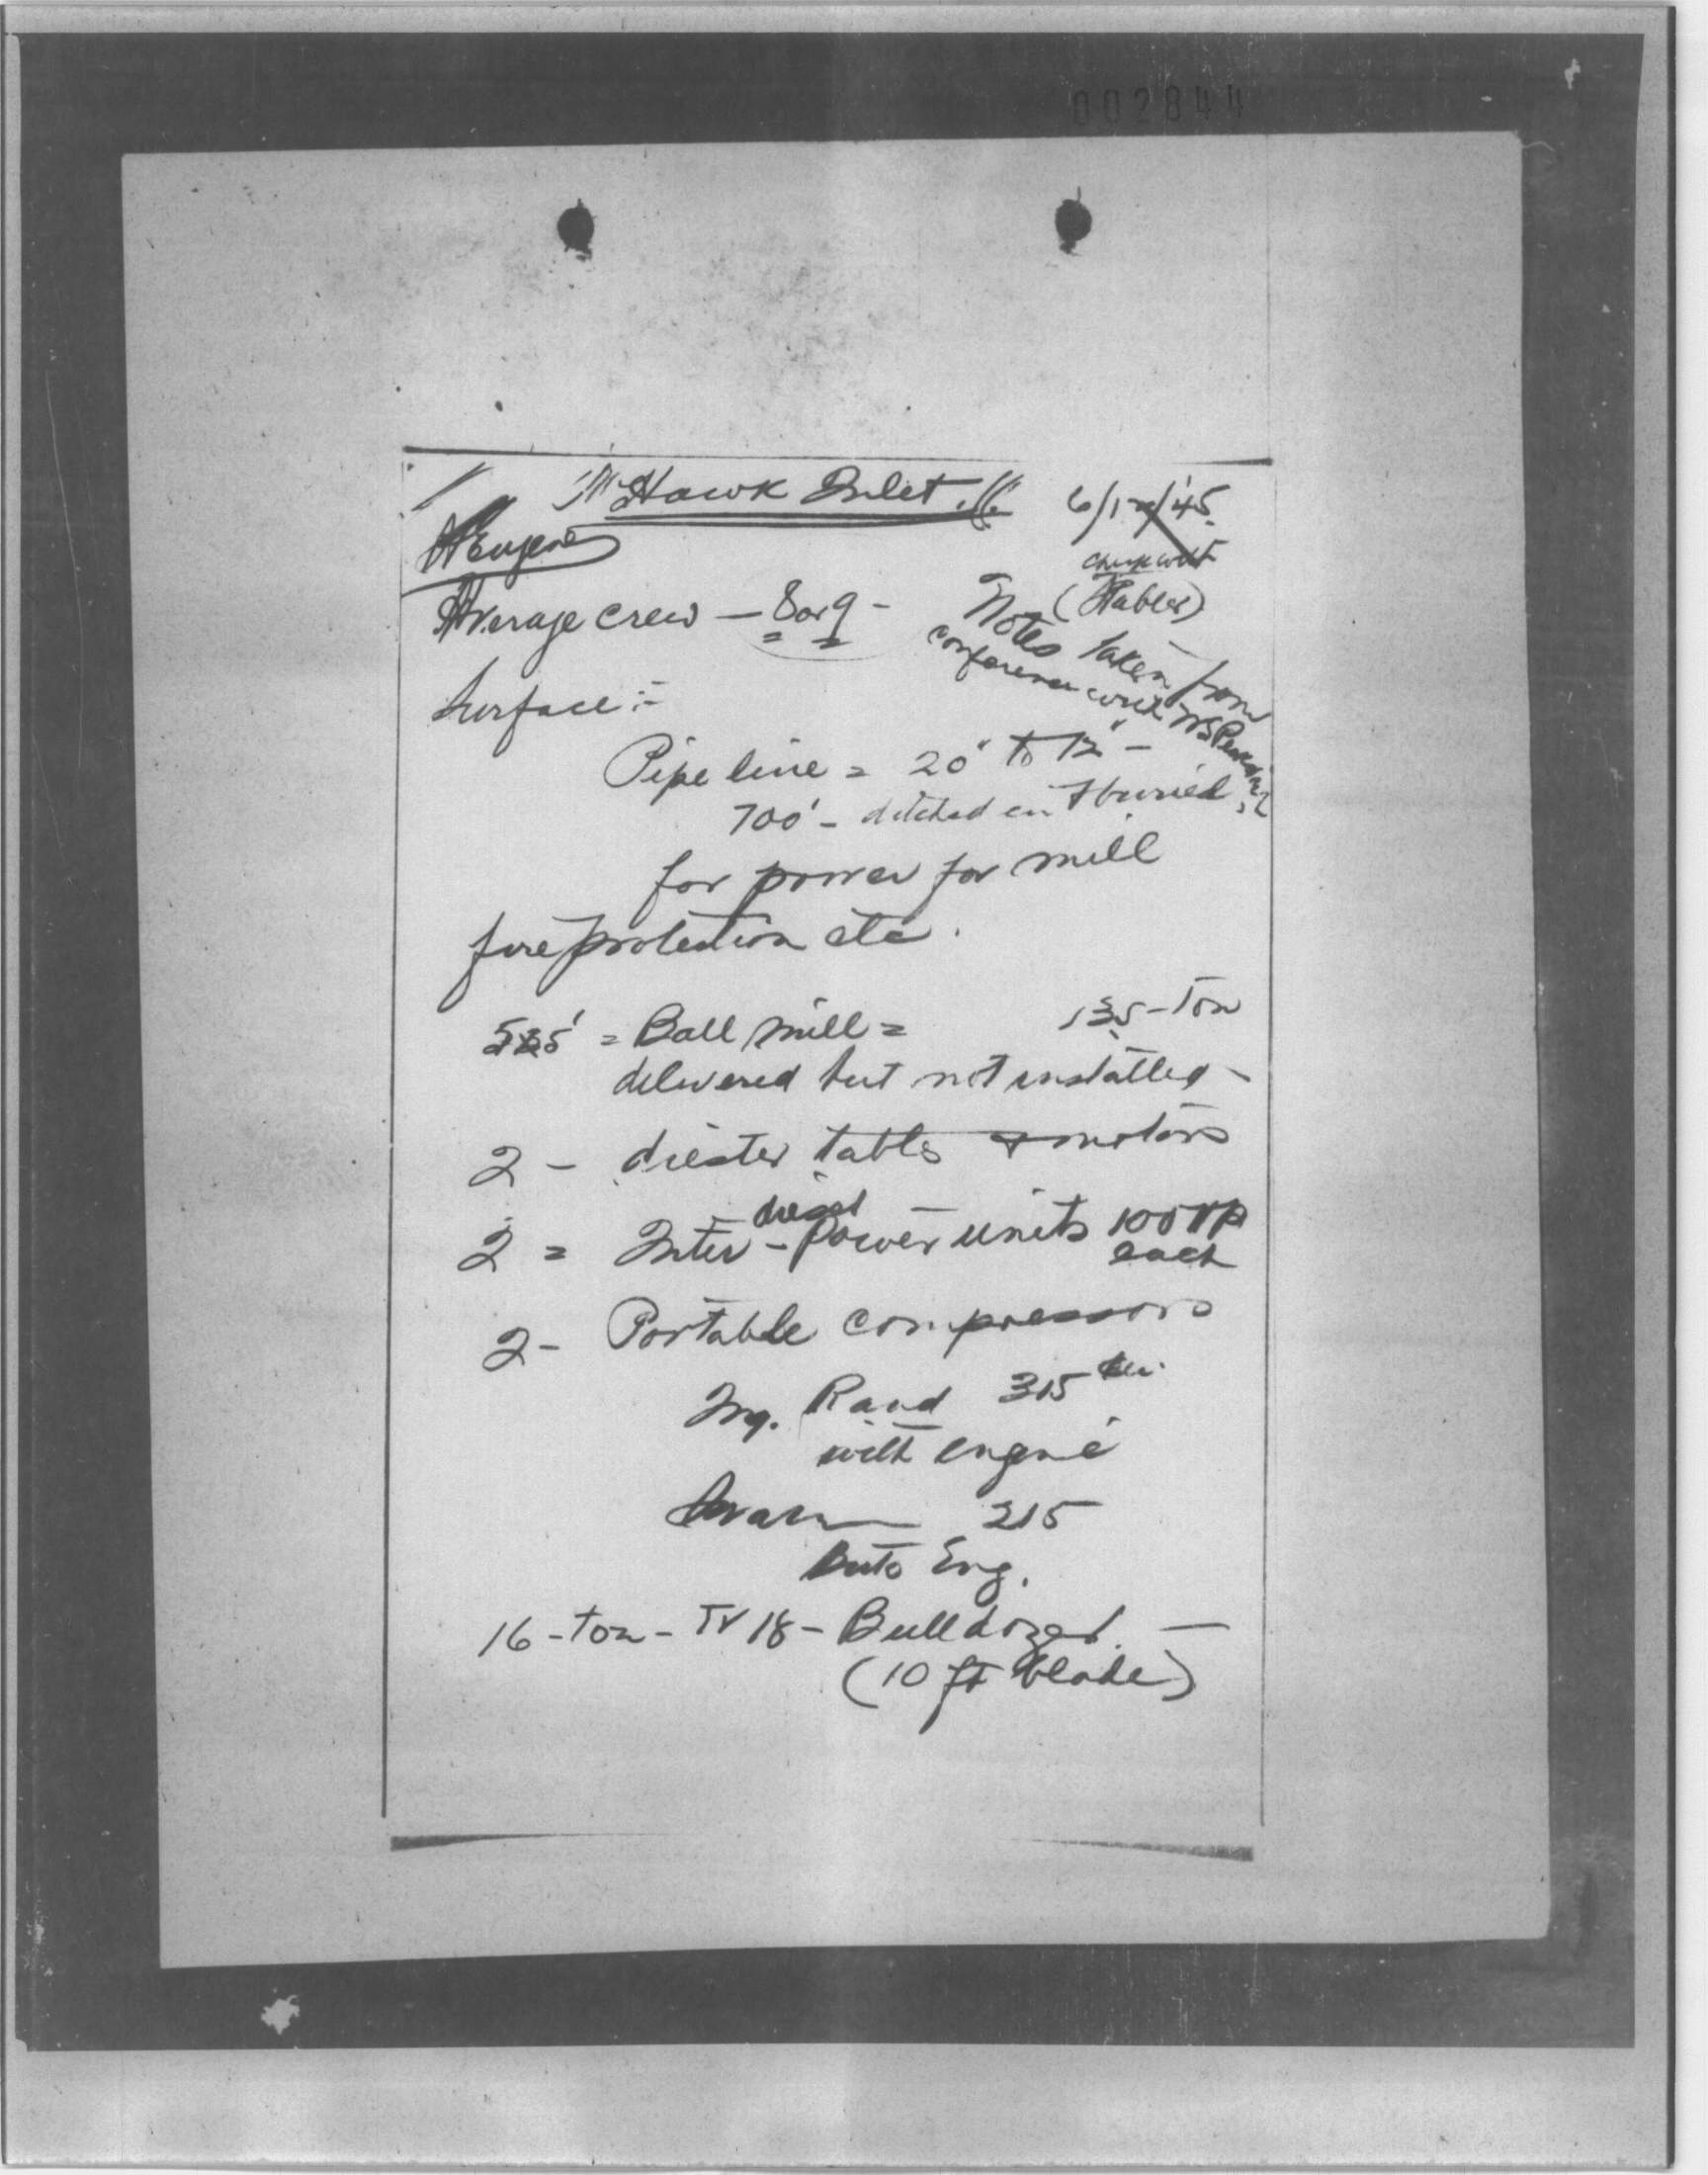 002844
"Hawk Inlet."
6/12/45
Eugene
check with
(Tables)
Average crew — 8 or 9 -
Notes taken from
conference with
Surface :-
Pipe line = 20" to 12" -
700' - ditched in & buried
for power for mill
fire protection etc.
= Ball mill = 135-Ton
delivered but not installed -
2 - diester tables & motors
diesel
2 = Inter - Power units 100 HP
each
2 - Portable compressors
Ing. Rand 315
with engine
215
Auto Eng.
16 - Ton - TD 18 - Bulldozer. —
(10 ft blade)